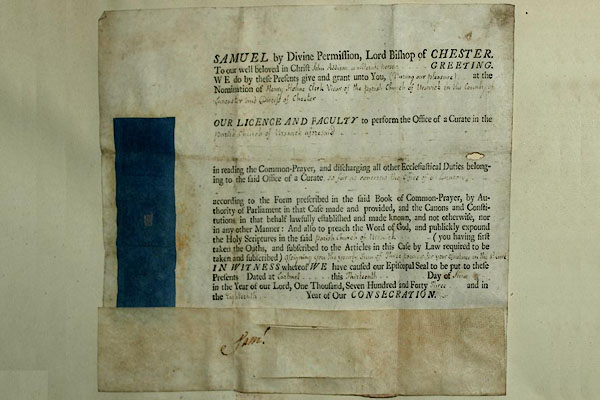 SAMUEL by Divine Permission, Lord Bishop of CHESTER.
To our well beloved in Christ John Addison GREETING.
WE do by these Presents give and grant unto You, (During our Pleasure) at the
Nomination of Henry Holme Clerk Vicar of the parish Church of Urswick in the County of
Lancaster and Diocess of Chester
OUR LICENCE AND FACULTY to perform the Office of a Curate in the
parish Church of Urswick aforesaid
in reading the Common-Prayer, and discharging all other Ecclesiastical Duties belong-
ing to the said Office of a Curate so far as concerns the Office of a
according to the Form prescribed in the said Book of Common-Prayer, by Au-
thority of Parliament in that Case made and provided, and the Canons and Consti-
tutions in that behalf lawfully established and made known, and not otherwise, nor
in any other Manner: And also to preach the Word of God, and publickly expound
the Holy Scriptures in the said parish Church of Urswick (you having first
taken the Oaths, and subscribed to the Articles in this Case by Law required to be
taken and subscribed) Assigning you the yearly Sum of pounds for your in the Cure
IN WITNESS whereof WE have caused our Episcopal Seal to be put to these
Presents Dated at this Thirteenth Day of June
in the Year of our Lord, One Thousand, Seven Hundred and Forty Three and in
the Eighteenth Year of Our CONSECRATION.
Sam!